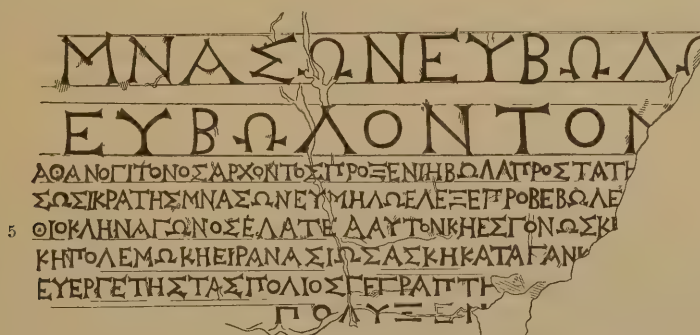 ΜΝΑΣΩΝΕΥΒΩΛΩ
ΕΥΒΩΛΟΝΤΟΝ
ΑΘΑΝΟΓΙΤΟΝΟΣΑΡΧΟΝΤΟΣΠΡΟΞΕΝΙΗΒΩΛΑΠΡΟΣΤΑΤΗ
ΣΩΣΙΚΡΑΤΗΣΜΝΑΣΩΝΕΥΜΗΛΩΕΛΕΞΕΠΡΟΒΕΒΩΛΕ
5 ΘΙΟΚΛΗΝΑΓΩΝΟΣΕΛΑΤΕ ΑΑΥΤΟΝΚΗΕΣΓΟΝΩΣΚΙ
ΚΗΠΟΛΕΜΩΚΗΕΙΡΑΝΑΣΙΩΣΑΣΚΗΚΑΤΑΓΑΝΚ
ΕΥΕΡΓΕΤΗΣΤΑΣΠΟΛΙΟΣΓΕΓΡΑΠΤΗ
ΠΟΛΥΞΕΝ